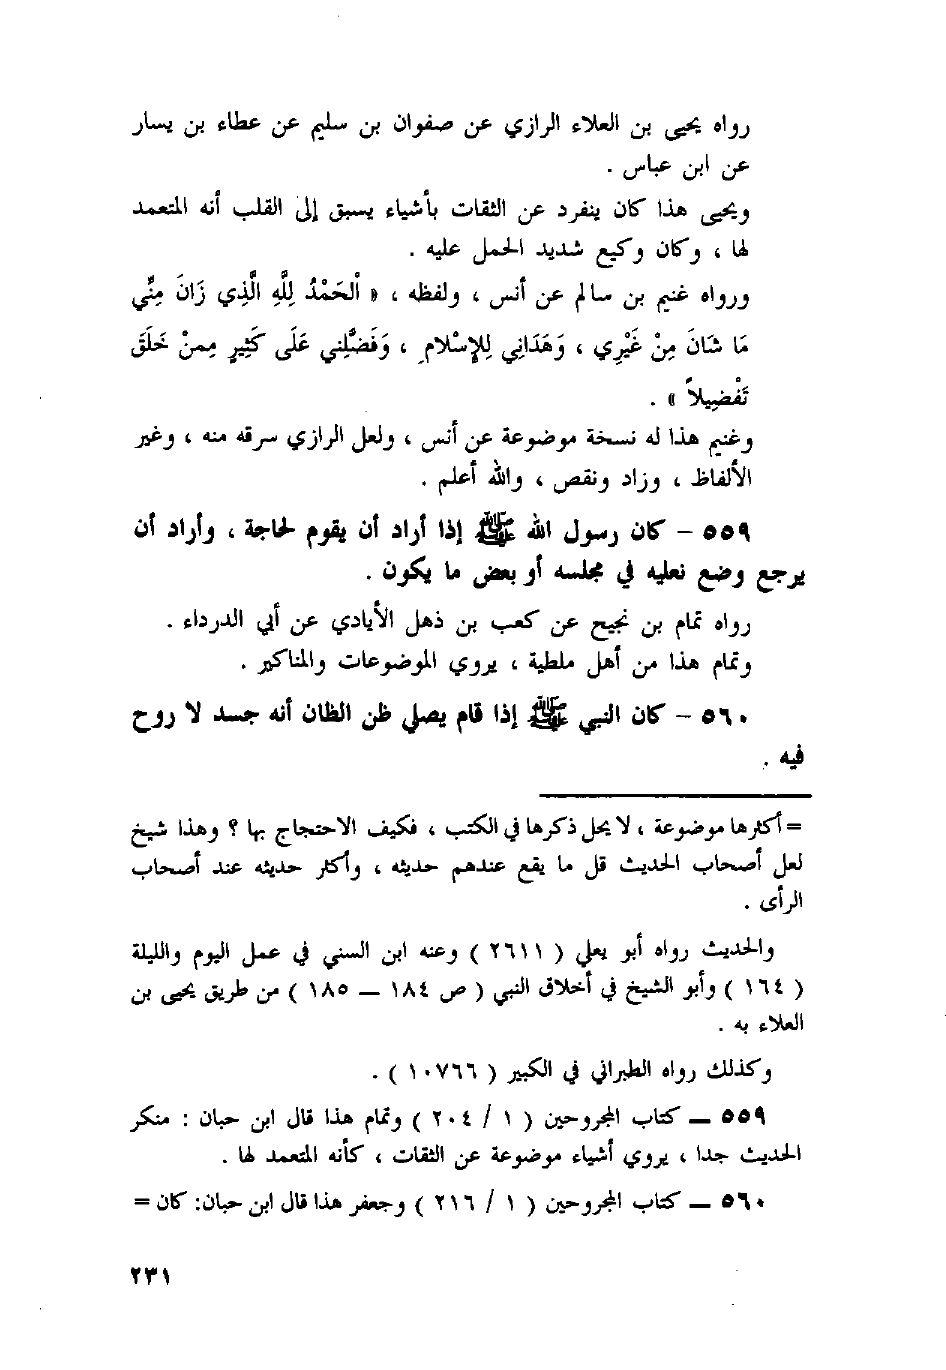 رواه يحيى بن العلاء الرازي عن صفوان بن سليم عن عطاء بن يسار
عن ابن عباس .
ويحيى هذا كان ينفرد عن الثقات بأشياء يسبق إلى القلب أنه المتعمد
لها ، وكان وكيع شديد الحمل عليه .
ورواه غنيم بن سالم عن أنس ، ولفظه ، « اْلحَمْدُ لِلَّهِ الَّذِي زَانَ مِنِّي
مَا شَانَ مِنْ غَيْرِي ، وَهَدَانِي لِلإِسْلامِ ، وَفَضَّلِني عَلَى كَثِيرٍ مِمنْ خَلَقَ
تَفْضِيلاً » .
وغنيم هذا له نسخة موضوعة عن أنس ، ولعل الرازي سرقه منه ، وغير
الألفاظ ، وزاد ونقص ، والله أعلم .
٥٥٩ – كان رسول الله ﷺ إذا أراد أن يقوم لحاجة ، وأراد أن
يرجع وضع نعليه في مجلسه أو بعض ما يكون .
رواه تمام بن نجيح عن كعب بن ذهل الأيادي عن أبي الدرداء .
وتمام هذا من أهل ملطية ، يروي الموضوعات والمناكير .
٥٦٠ – كان النبي ﷺ إذا قام يصلي ظن الظان أنه جسد لا روح
فيه .
= أكثرها موضوعة ، لا يحل ذكرها في الكتب ، فكيف الاحتجاج بها ؟ وهذا شيخ
لعل أصحاب الحديث قل ما يقع عندهم حديثه ، وأكثر حديثه عند أصحاب
الرأى .
والحديث رواه أبو يعلي ( ٢٦١١ ) وعنه ابن السني في عمل اليوم والليلة
( ١٦٤ ) وأبو الشيخ في أخلاق النبي ( ص ١٨٤ – ١٨٥ ) من طريق يحيى بن
العلاء به .
وكذلك رواه الطبراني في الكبير ( ١٠٧٦٦ ) .
٥٥٩ – كتاب المجروحين ( ١ / ٢٠٤ ) وتمام هذا قال ابن حبان : منكر
الحديث جدا ، يروي أشياء موضوعة عن الثقات ، كأنه المتعمد لها .
٥٦٠ – كتاب المجروحين ( ١ / ٢١٦ ) وجعفر هذا قال ابن حبان: كان =
٢٣١